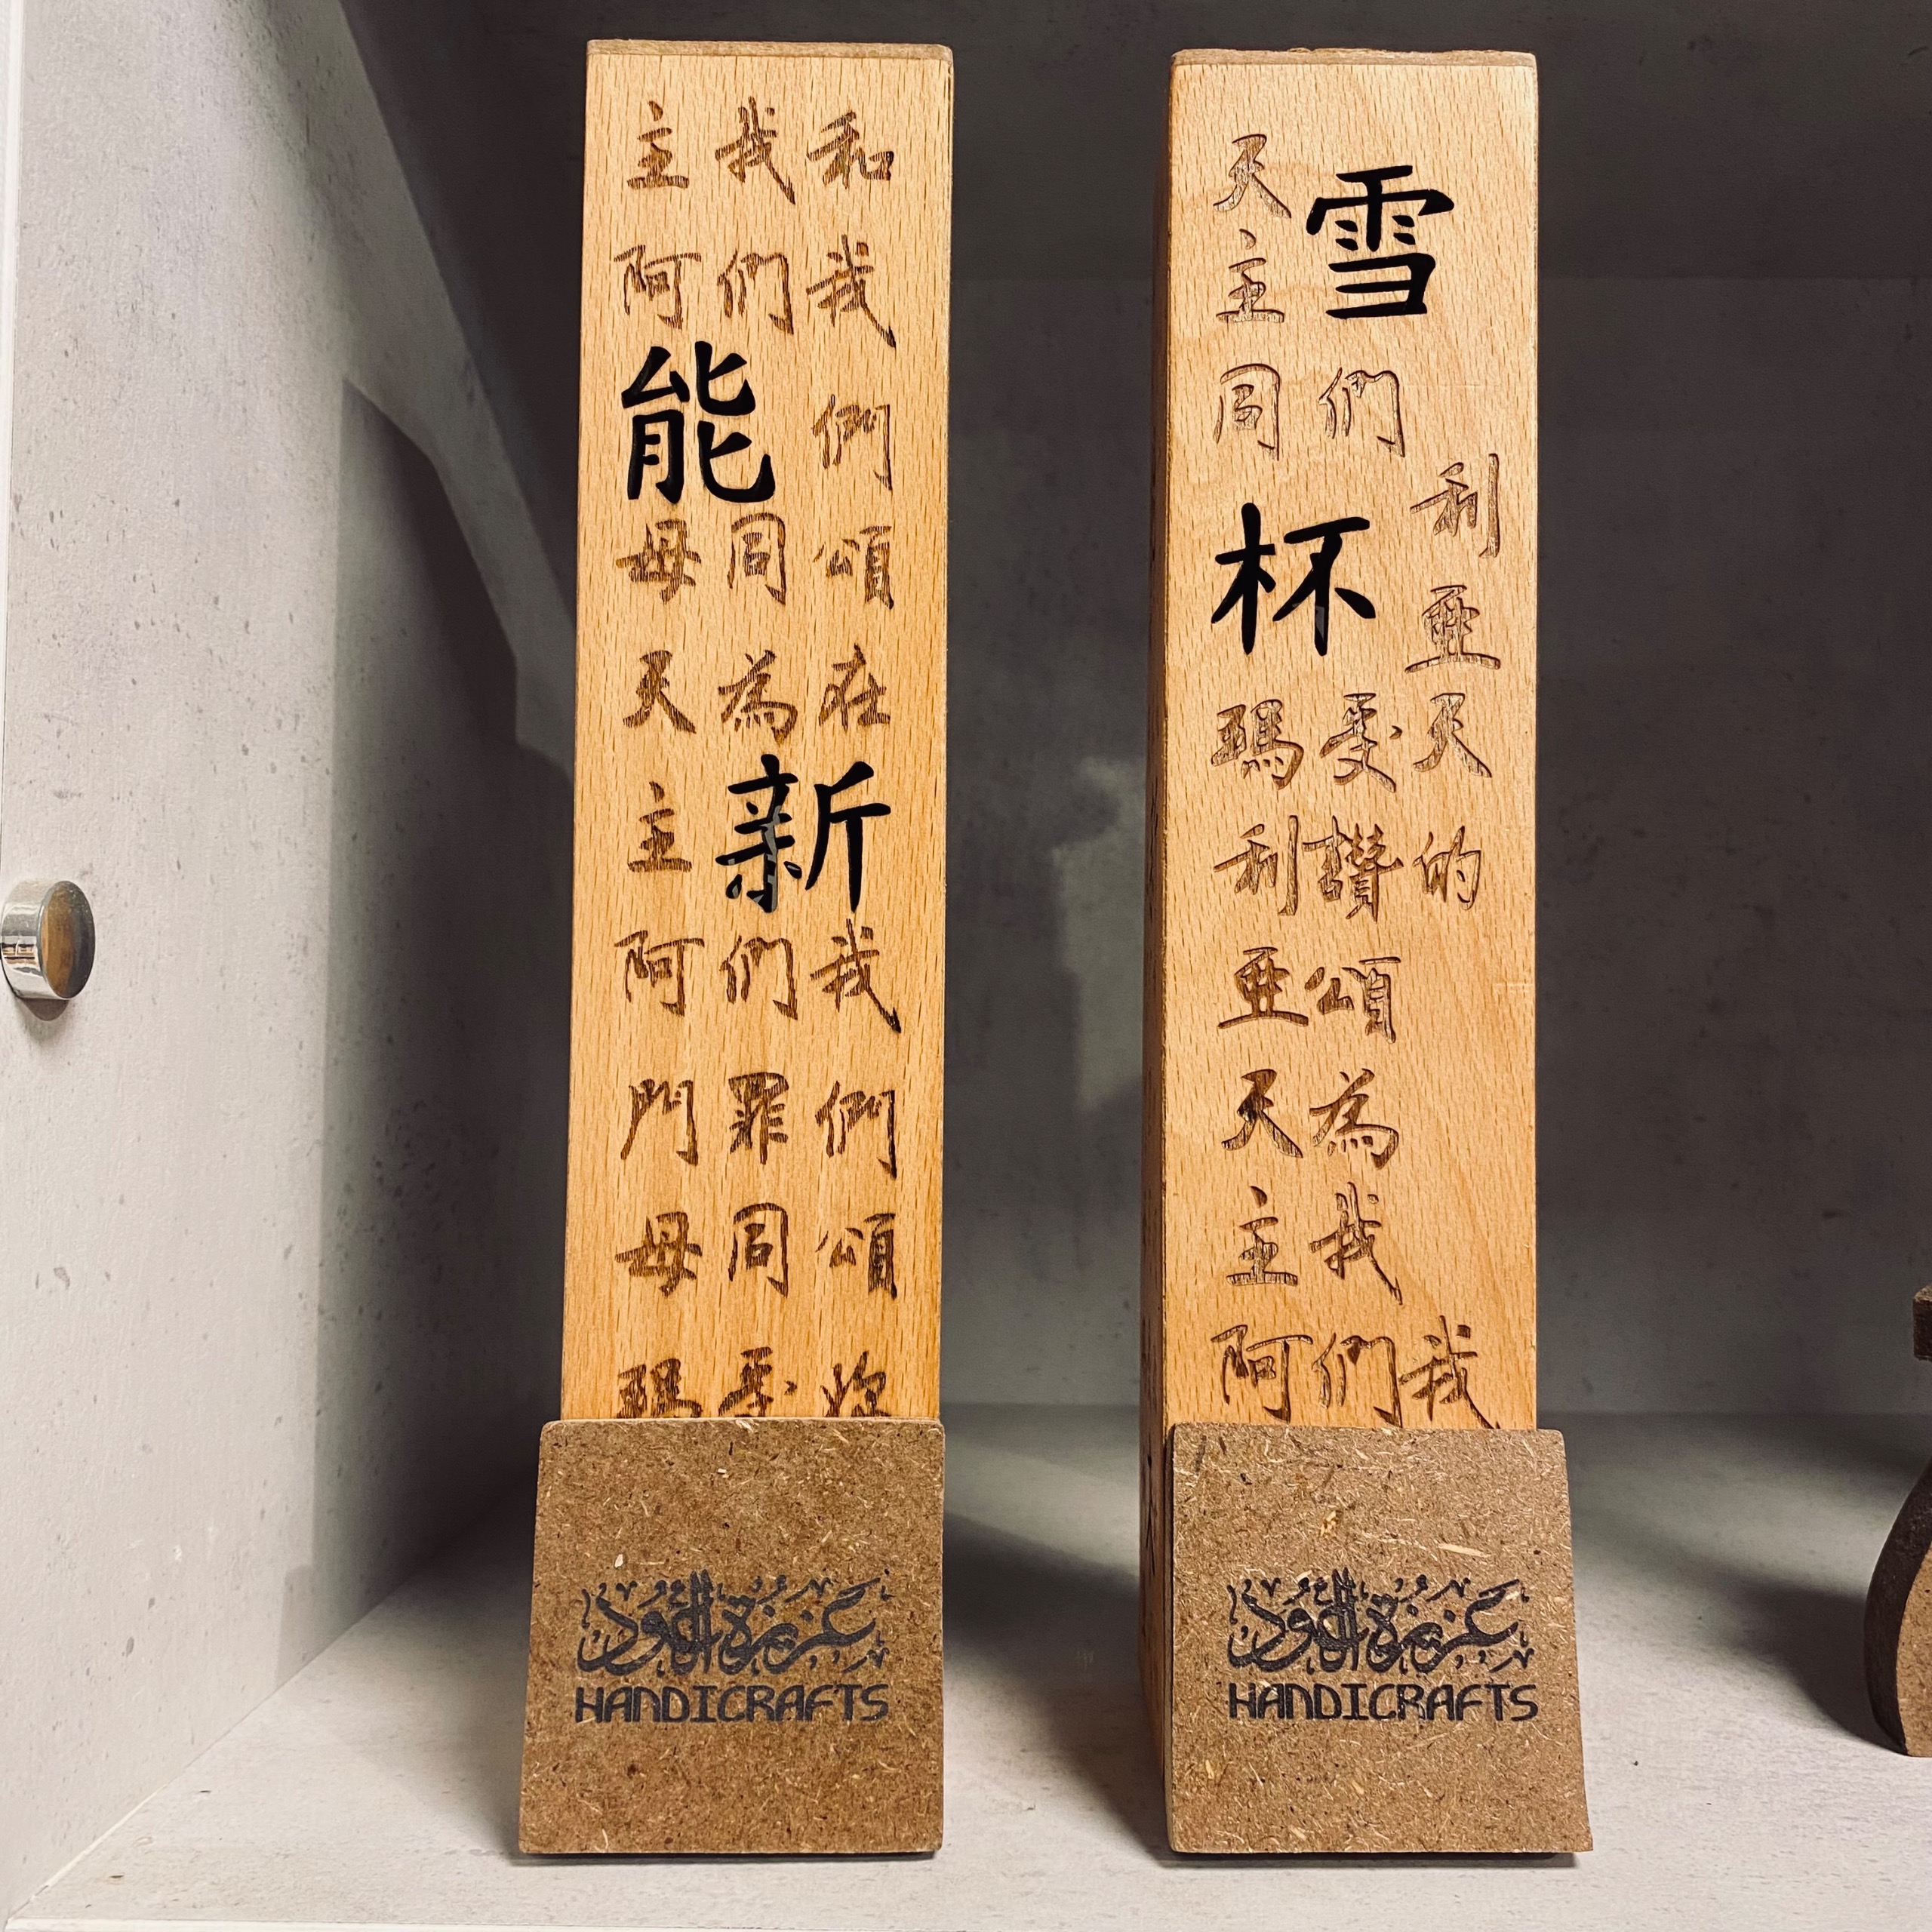 和我們頌在我們頌
我們同為新們罪同
主阿能母天主阿門母
عزيزة العود
HANDICRAFTS
利亞天的我
雪們受讚頌為我們
天主同杯瑪利亞天主阿
عزيزة العود
HANDICRAFTS